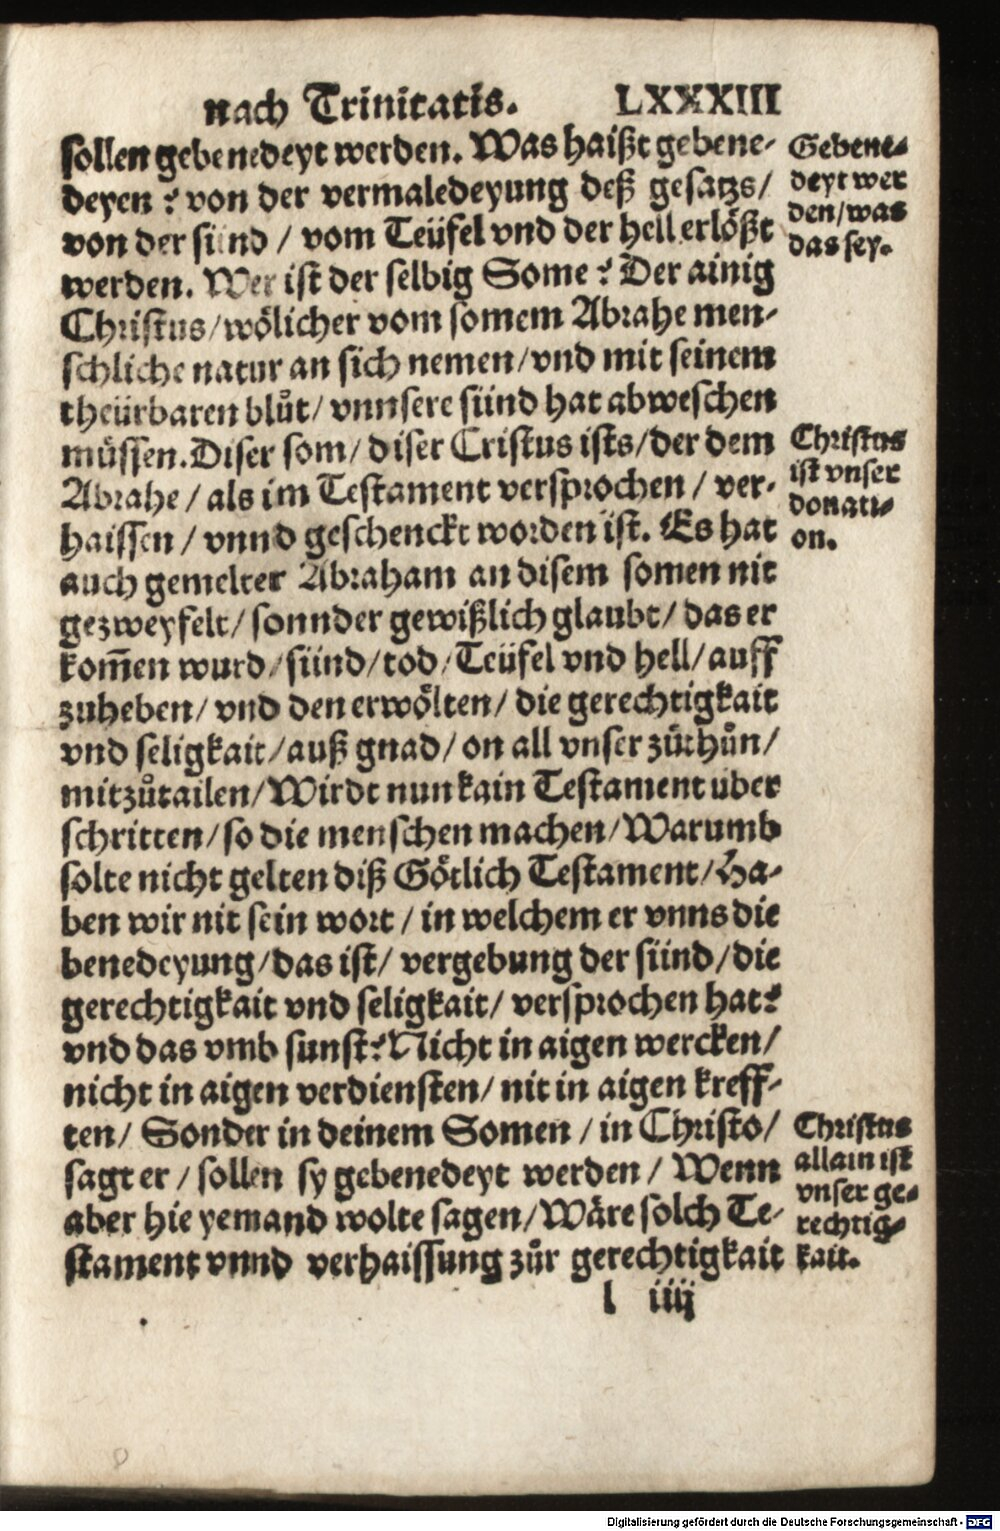 nach Trinitatis. LXXXIII
sollen gebenedeyt werden. Was haißt gebene-
deyen? von der vermaledeyung deß gesatzs/
von der sünd / vom Teüfel vnd der hell erlößt
werden. Wer ist der selbig Some? Der ainig
Christus/wölicher vom somem Abrahe men-
schliche natur an sich nemen/vnd mit seinem
theürbaren blůt/ vnnsere sünd hat abweschen
müssen. Diser som/ diser Cristus ists/der dem
Abrahe / als im Testament versprochen / ver-
haissen / vnnd geschenckt worden ist. Es hat
auch gemelter Abraham an disem somen nit
gezweyfelt/ sonnder gewißlich glaubt/ das er
kom̃en wurd/sünd/tod/Teüfel vnd hell/auff
zuheben/ vnd den erwölten/ die gerechtigkait
vnd seligkait/auß gnad/ on all vnser zůthůn/
mitzůtailen/Wirdt nun kain Testament uber
schritten/so die menschen machen/Warumb
solte nicht gelten diß Götlich Testament/Ha-
ben wir nit sein wort / in welchem er vnns die
benedeyung/das ist/ vergebung der sünd/die
gerechtigkait vnd seligkait/ versprochen hat?
vnd das vmb sunst? Nicht in aigen wercken/
nicht in aigen verdiensten/ nit in aigen kreff-
ten/ Sonder in deinem Somen / in Christo/
sagt er / sollen sy gebenedeyt werden / Wenn
aber hie yemand wolte sagen/Wäre solch Te-
stament vnnd verhaissung zůr gerechtigkait
l iiij
Gebene-
deyt wer
den/was
das sey.
Christus
ist vnser
donati-
on.
Christus
allain ist
vnser ge-
rechtig-
kait.
Digitalisierung gefördert durch die Deutsche Forschungsgemeinschaft - DFG